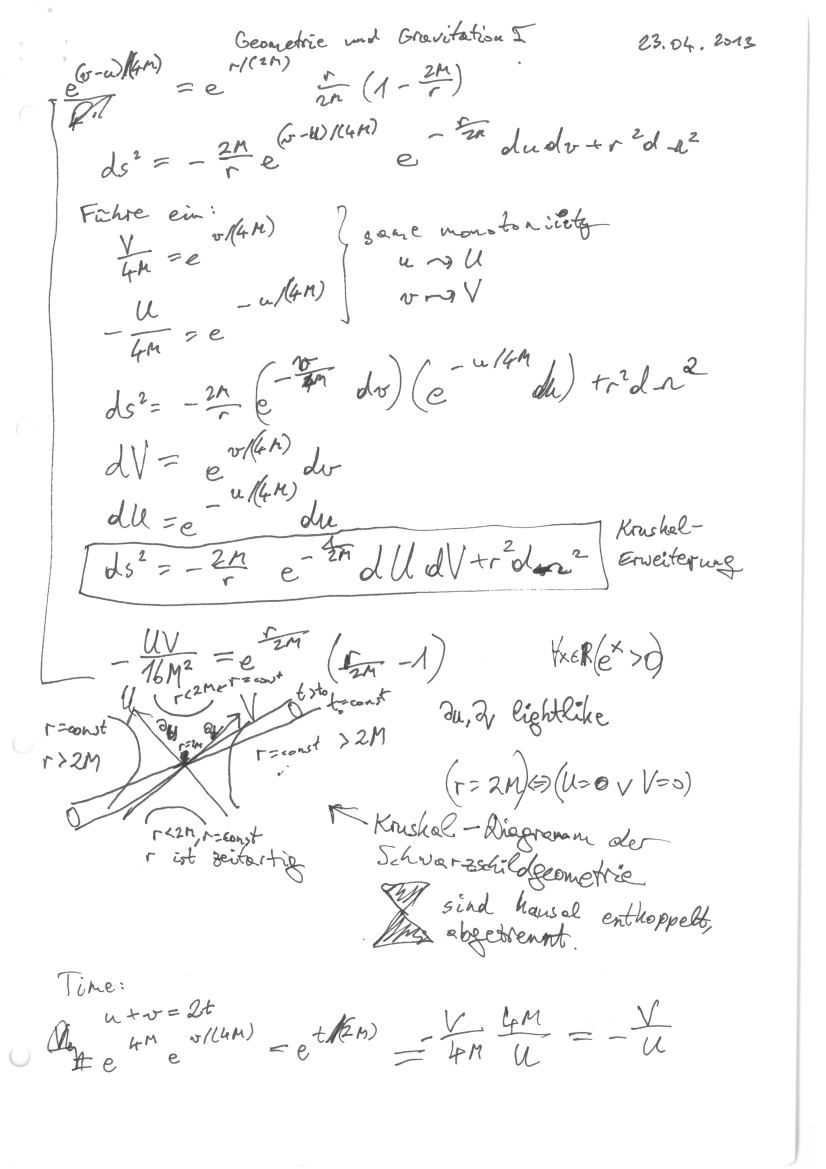 Geometrie und Gravitation I 23.04.2013
e^{(v-u)/(4M)} = e^{r/(2M)} r/2M (1 - 2M/r)
ds² = - 2M/r e^{(v-u)/(4M)} e^{-r/2M} du dv + r² dΩ²
Führe ein:
V/4M = e^{v/(4M)}
same monotonicity
u ⇝ U
v ⇝ V
- U/4M = e^{-u/(4M)}
ds² = - 2M/r (e^{-v/4M} dv) (e^{-u/4M} du) + r² dΩ²
dV = e^{v/(4M)} dv
dU = e^{-u/(4M)} du
ds² = - 2M/r e^{-r/2M} dU dV + r² dΩ²
Kruskal-
Erweiterung
- UV/16M² = e^{r/2M} (r/2M - 1) ∀x∈ℝ(e^x > 0)
r<2M, r=const
U V t>t₀
t₀=const
r=const
r>2M
∂U ∂V
r=2M
r=const > 2M
∂u, ∂v lightlike
(r = 2M) ⇔ (U=0 ∨ V=0)
r<2M, r=const
r ist zeitartig
Kruskal-Diagramm der
Schwarzschildgeometrie
sind kausal entkoppelt,
abgetrennt.
Time:
u + v = 2t
e^{4M} e^{v/(4M)} = e^{t/(2M)} = - V/4M 4M/U = - V/U